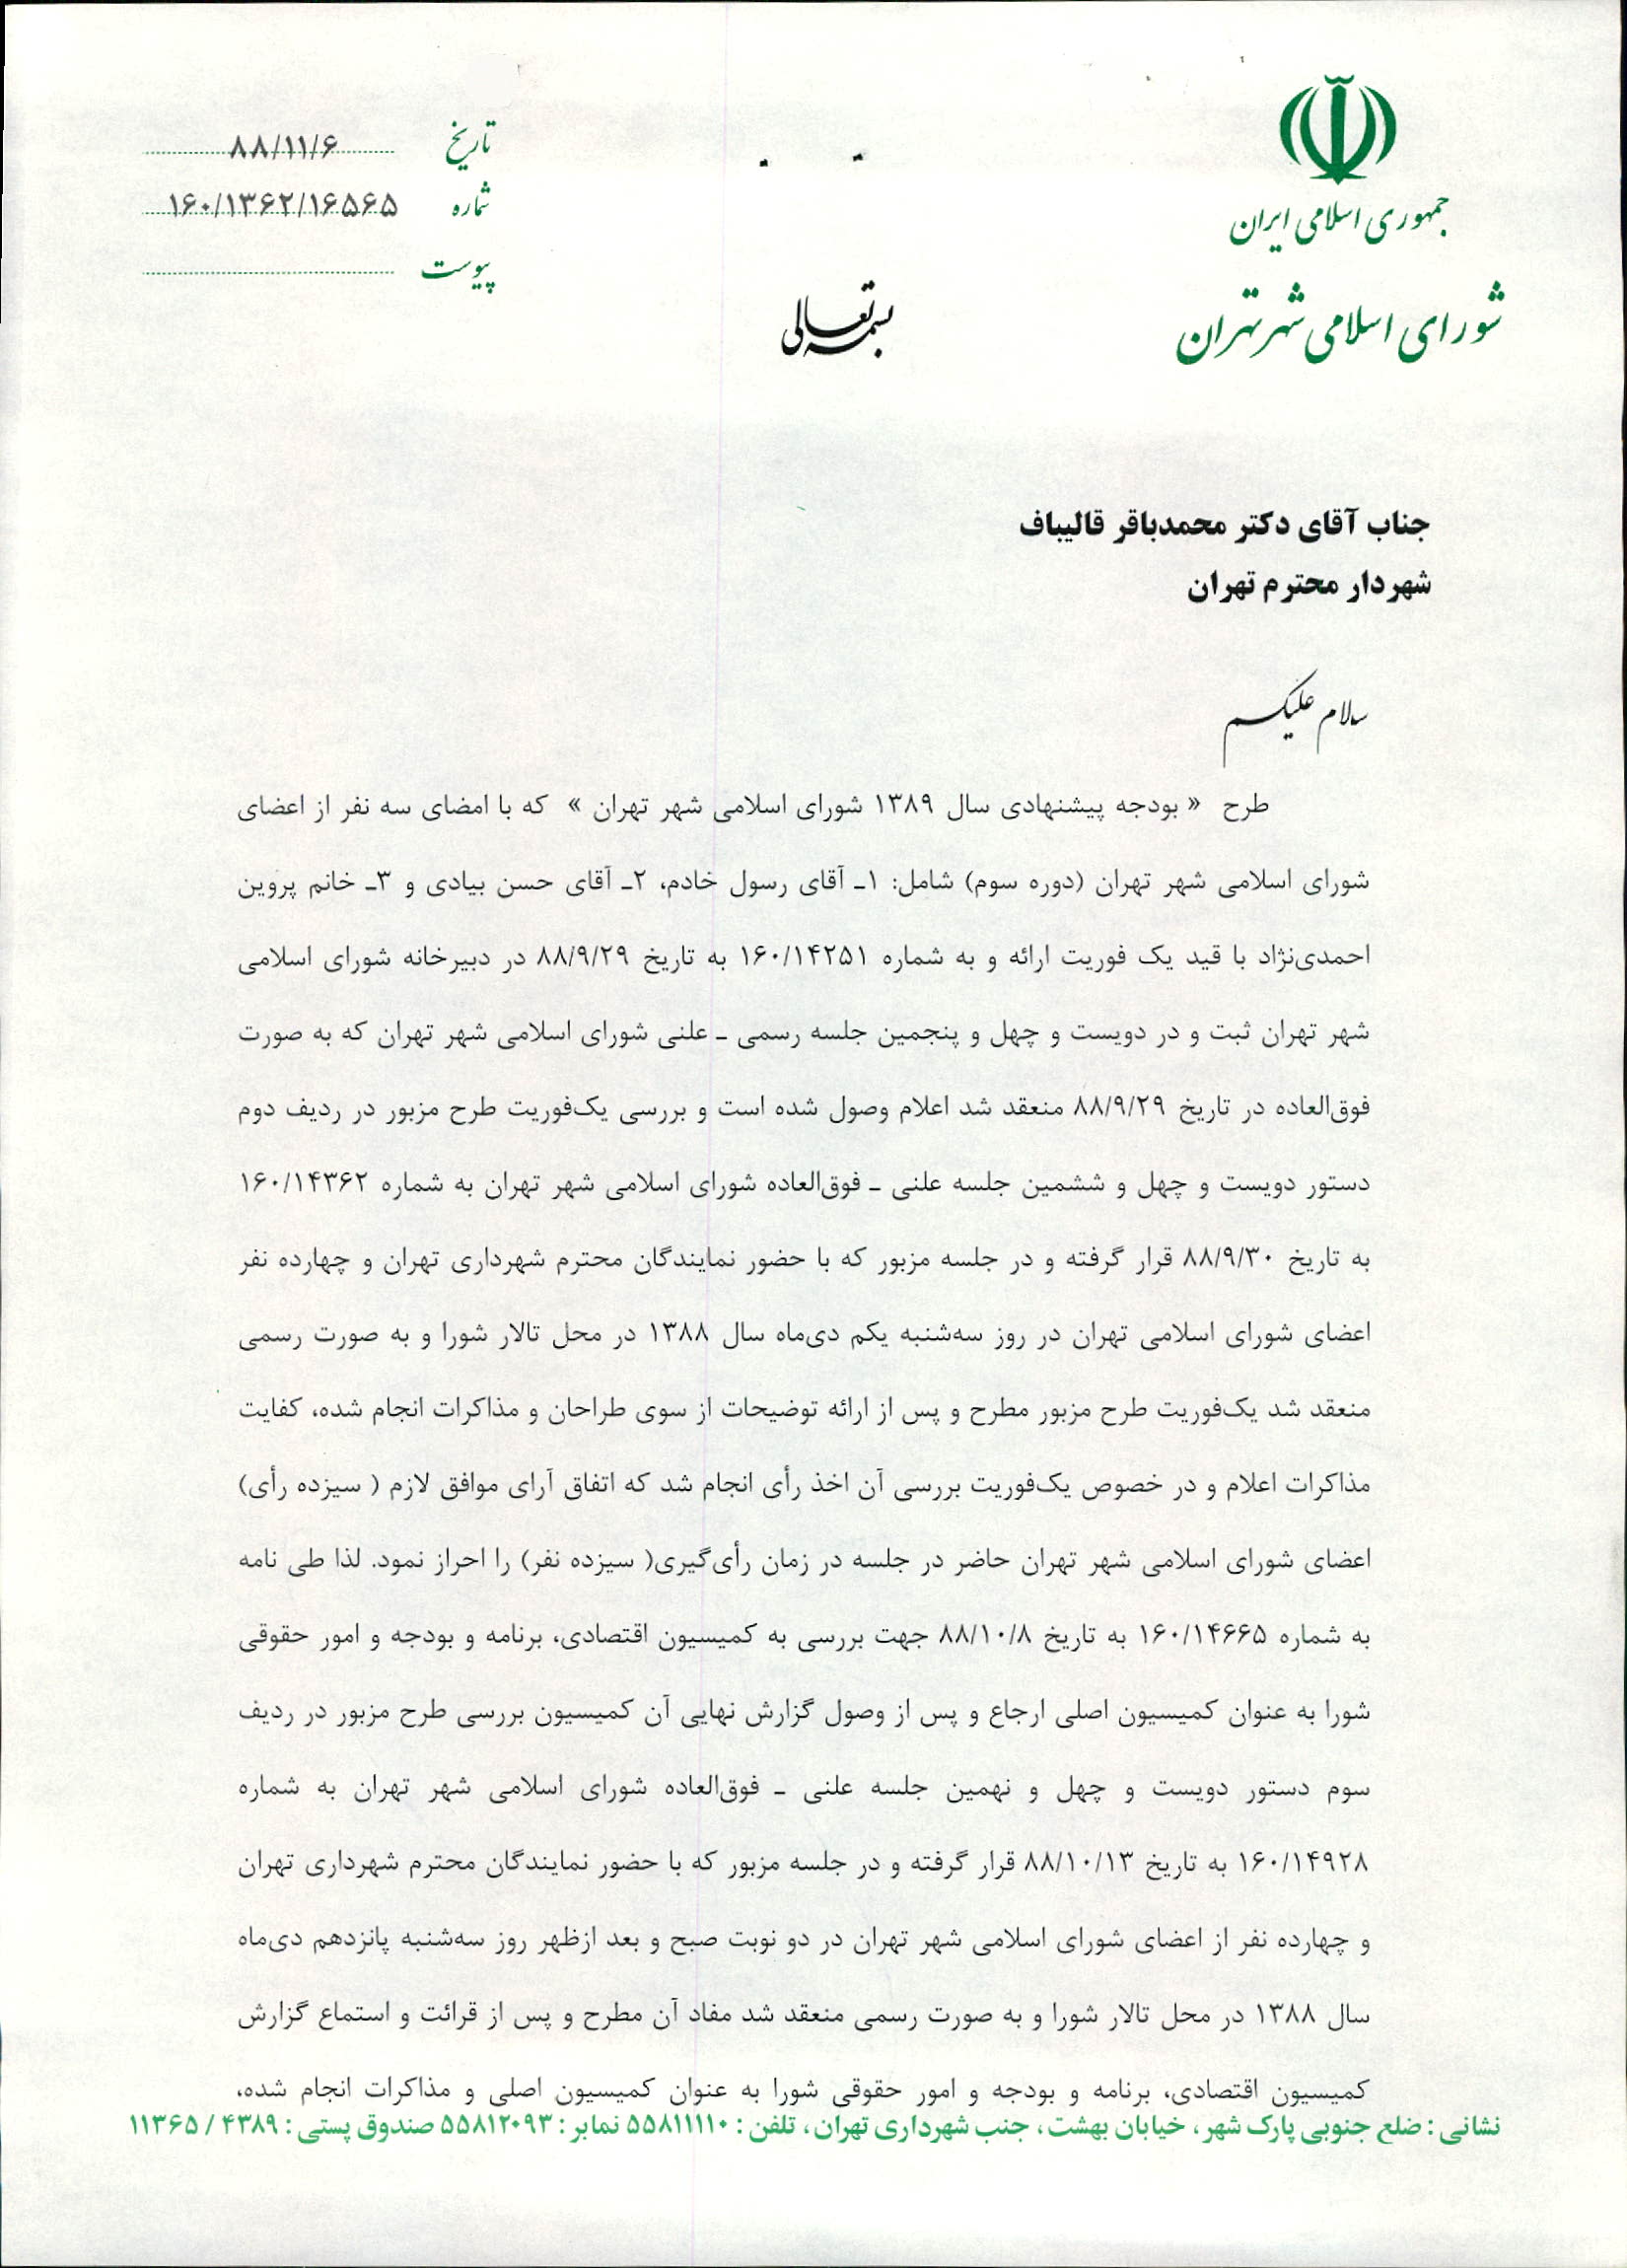 جمهوری اسلامی ایران
شورای اسلامی شهر تهران
تاریخ ۸۸/۱۱/۶
شماره ۱۶۰/۱۳۶۲/۱۶۵۶۵
پیوست
بسمه تعالی
جناب آقای دکتر محمدباقر قالیباف
شهردار محترم تهران
سلام علیکم
طرح « بودجه پیشنهادی سال ۱۳۸۹ شورای اسلامی شهر تهران » که با امضای سه نفر از اعضای
شورای اسلامی شهر تهران (دوره سوم) شامل: ۱ـ آقای رسول خادم، ۲ـ آقای حسن بیادی و ۳ـ خانم پروین
احمدی‌نژاد با قید یک فوریت ارائه و به شماره ۱۶۰/۱۴۲۵۱ به تاریخ ۸۸/۹/۲۹ در دبیرخانه شورای اسلامی
شهر تهران ثبت و در دویست و چهل و پنجمین جلسه رسمی ـ علنی شورای اسلامی شهر تهران که به صورت
فوق‌العاده در تاریخ ۸۸/۹/۲۹ منعقد شد اعلام وصول شده است و بررسی یک‌فوریت طرح مزبور در ردیف دوم
دستور دویست و چهل و ششمین جلسه علنی ـ فوق‌العاده شورای اسلامی شهر تهران به شماره ۱۶۰/۱۴۳۶۲
به تاریخ ۸۸/۹/۳۰ قرار گرفته و در جلسه مزبور که با حضور نمایندگان محترم شهرداری تهران و چهارده نفر
اعضای شورای اسلامی تهران در روز سه‌شنبه یکم دی‌ماه سال ۱۳۸۸ در محل تالار شورا و به صورت رسمی
منعقد شد یک‌فوریت طرح مزبور مطرح و پس از ارائه توضیحات از سوی طراحان و مذاکرات انجام شده، کفایت
مذاکرات اعلام و در خصوص یک‌فوریت بررسی آن اخذ رأی انجام شد که اتفاق آرای موافق لازم ( سیزده رأی)
اعضای شورای اسلامی شهر تهران حاضر در جلسه در زمان رأی‌گیری( سیزده نفر) را احراز نمود. لذا طی نامه
به شماره ۱۶۰/۱۴۶۶۵ به تاریخ ۸۸/۱۰/۸ جهت بررسی به کمیسیون اقتصادی، برنامه و بودجه و امور حقوقی
شورا به عنوان کمیسیون اصلی ارجاع و پس از وصول گزارش نهایی آن کمیسیون بررسی طرح مزبور در ردیف
سوم دستور دویست و چهل و نهمین جلسه علنی ـ فوق‌العاده شورای اسلامی شهر تهران به شماره
۱۶۰/۱۴۹۲۸ به تاریخ ۸۸/۱۰/۱۳ قرار گرفته و در جلسه مزبور که با حضور نمایندگان محترم شهرداری تهران
و چهارده نفر از اعضای شورای اسلامی شهر تهران در دو نوبت صبح و بعد ازظهر روز سه‌شنبه پانزدهم دی‌ماه
سال ۱۳۸۸ در محل تالار شورا و به صورت رسمی منعقد شد مفاد آن مطرح و پس از قرائت و استماع گزارش
کمیسیون اقتصادی، برنامه و بودجه و امور حقوقی شورا به عنوان کمیسیون اصلی و مذاکرات انجام شده،
نشانی : ضلع جنوبی پارک شهر ، خیابان بهشت ، جنب شهرداری تهران ، تلفن : ۵۵۸۱۱۱۱۰ نمابر : ۵۵۸۱۲۰۹۳ صندوق پستی : ۴۳۸۹ / ۱۱۳۶۵